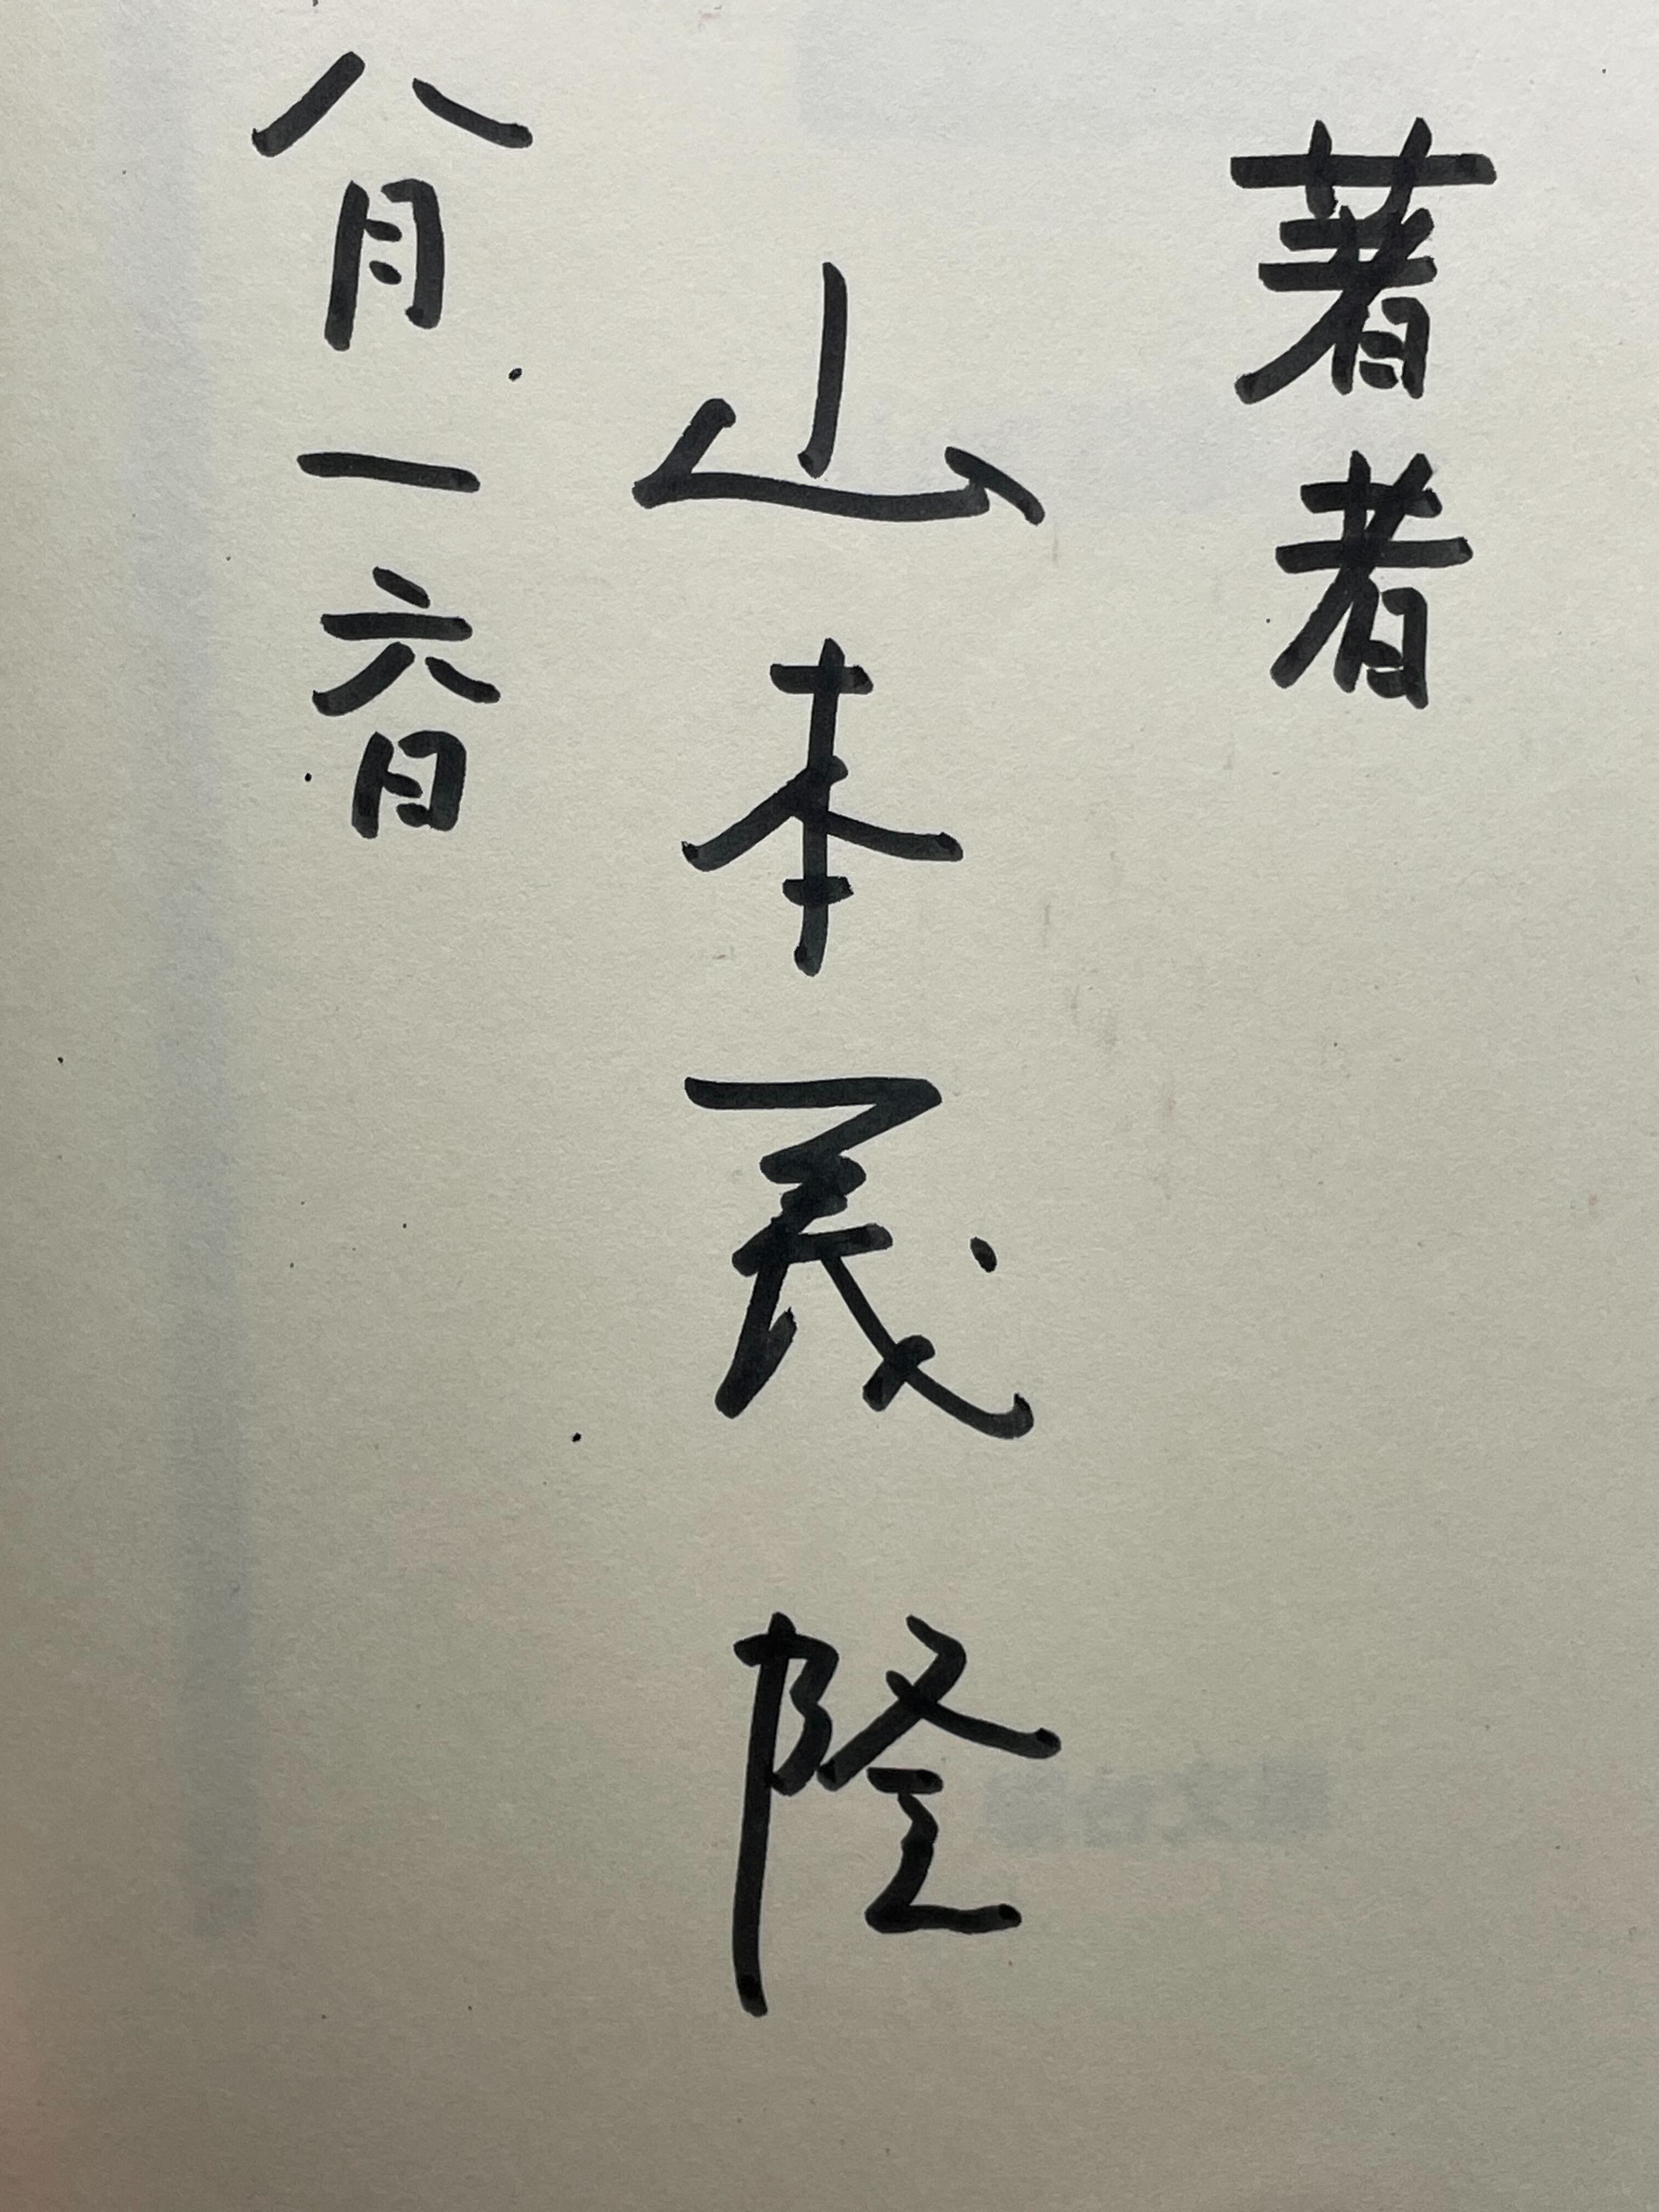 著者
山本義隆
八月一六日